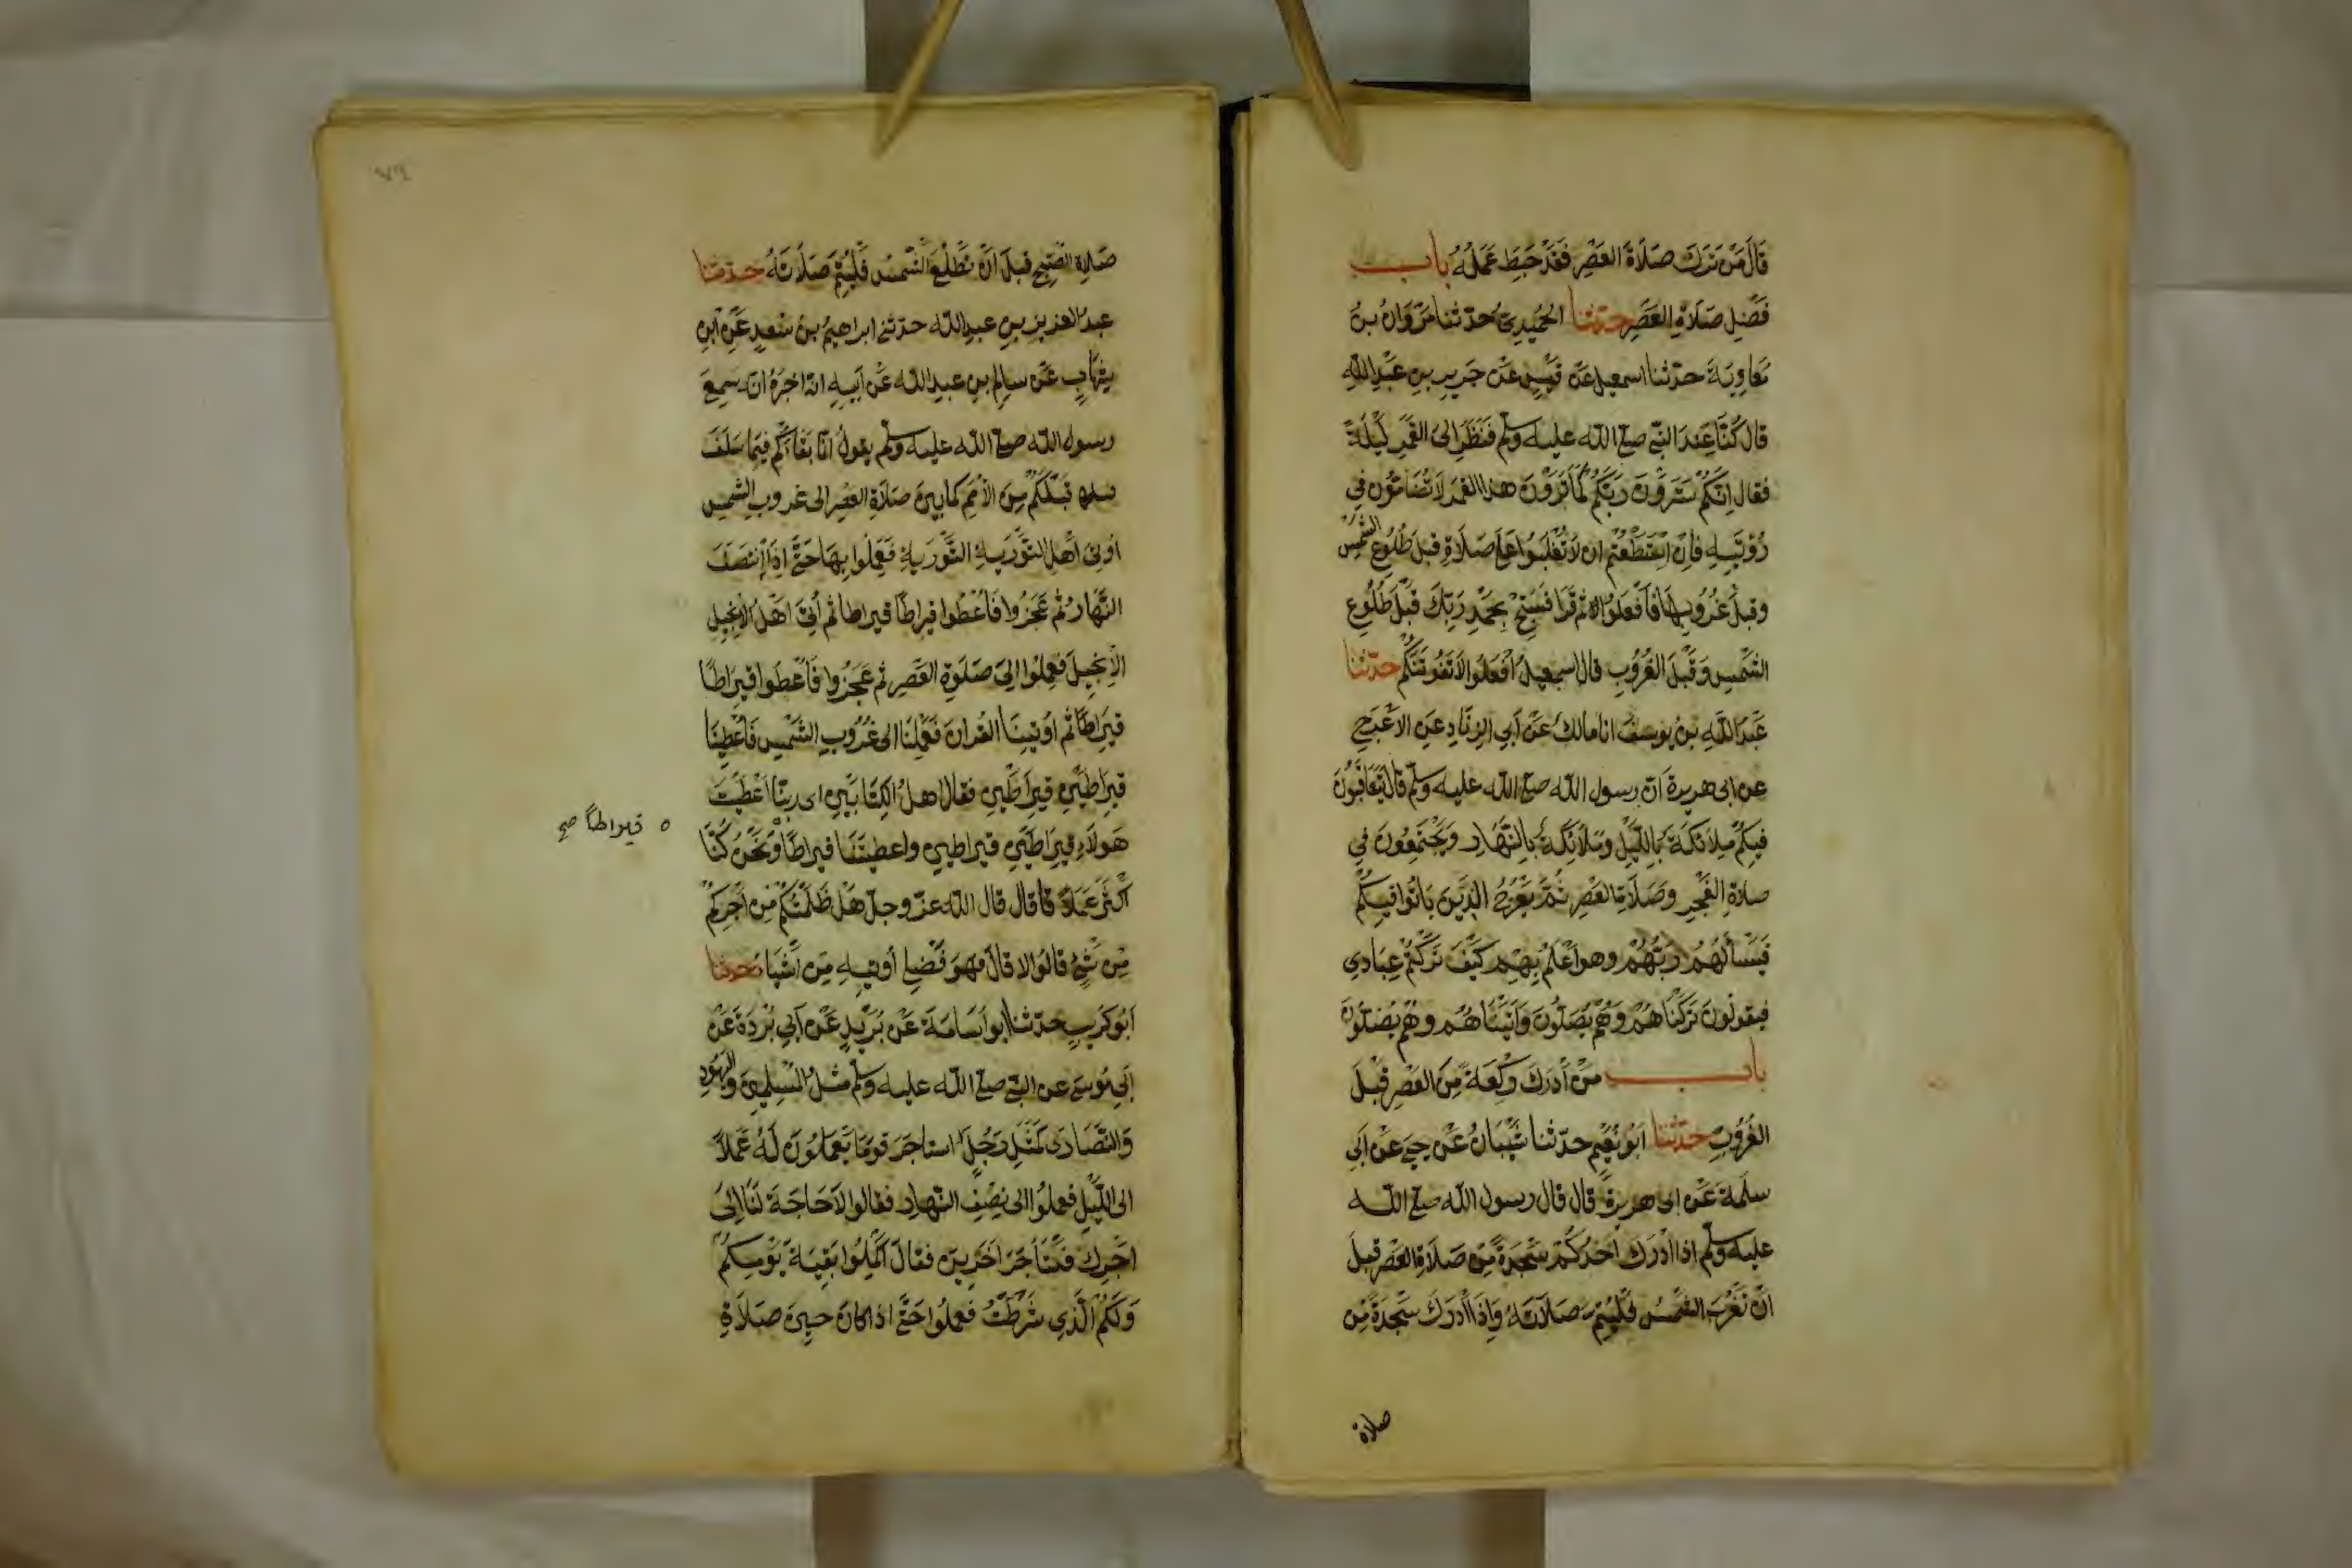 قَالَ مَنْ تَرَكَ صَلَاةَ العَصْرِ فَقَدْ حَبِطَ عَمَلُهُ باب
فَضْلِ صَلَاةِ العَصْرِ حدثنا الحُمَيدِيّ حدّثنا مَرْوَانُ بنُ
مُعَاوِيَةَ حدّثنا اسمعيل عَنْ قَيْسٍ عَنْ جَرِيرِ بنِ عَبْدِ اللهِ
قال كُنَّا عِنْدَ النبِّي صلى الله عليه وسلم فَنَظَرَ إِلى القَمَرِ لَيْلَةً
فقال اِنّكُمْ سَتَرَوْنَ رَبَّكُمْ كَمَا تَرَوْنَ هذا القمرَ لَا تُضَامّوُنَ فِي
رُؤْيَتِهِ فَإِنْ اسْتَطَعْتُمْ ان لَا تُغْلَبُوا عَلَى صَلَاةٍ قبلَ طُلُوعِ الشَّمْسِ
وقبلَ غُرُوبِهَا فَافْعَلُوا ثم قَرَا فَسَبِّحْ بِحَمْدِ رَبِّكَ قَبْلَ طُلُوعِ
الشَّمْسِ وَقَبْلَ الغُرُوبِ قال اسمعيلُ افْعَلُوا لَا تَفُوتَنَّكُمْ حدّثنا
عَبْدُ اللَّهِ بنُ يوسفَ انا مالك عَنْ أَبِي الزِّنَادِ عَنِ الاَعْرَجِ
عن ابى هريرة اَنّ رسول الله صلى الله عليه وسلم قال يَتَعَاقَبُونَ
فِيكُمْ مَلَائكَةٌ بِاللَّيْلِ وَمَلَائكَةٌ بِالنَّهَارِ وَيَجْتَمِعُونَ فِي
صلاةِ الفَجْرِ وَصَلَاةِ العَصْرِ ثُمَّ يَعْرُجُ الذِّينَ بَاتُوا فيكُمْ
فَيَسْأَلُهُمْ رَبُّهُمْ وهو اَعْلَمُ بِهِمْ كَيْفَ تَرَكْتُمْ عِبَادِي
فيقولُونَ تَرَكْنَاهُمْ وَهُمْ يُصَلّونَ وَاَتَيْنَاهُمْ وهُمْ يُصَلّونَ
باب مَنْ أَدْرَكَ رَكْعَةً مِنَ العَصْرِ قبْلَ
الغُرُوبِ حدّثنا اَبُو نُعَيْمٍ حدّثنا شَيْبَانُ عَنْ يحيى عَنْ اَبِي
سلَمَةَ عَنْ ابى هريرةَ قال قال رسول الله صلى الله
عليه وسلم اذا اَدْرَكَ أَحَدُكُمْ سَجْدَةً مِنْ صَلَاةِ العَصْرِ قبلَ
اَنْ تَغْرُبَ الشَّمْسُ فَلْيُتِمَّ صَلَاتَهُ وَإِذَا أَدْرَكَ سَجْدَةً مِنْ
صلاة
صَلاةِ الصُّبْحِ قبلَ اَنْ تَطْلُعَ الشَّمْسُ فَلْيُتِمَّ صَلَاتَهُ حدثنا
عبد العزيز بن عبدِ الله حدّثنى ابراهيمُ بنُ سَعدٍ عَنِ ابْنِ
شِهَابٍ عَنْ سالِمِ بنِ عبدِ الله عَنْ اَبيهِ انّه اخبَرَهُ انّه سمِعَ
رسول الله صلى الله عليه وسلم يقولُ انَّمَا بَقَاؤُكُمْ فِيمَا سَلَفَ
قَبْلَكُمْ مِنَ الأُمَمِ كما بينَ صَلَاةِ العَصْرِ الى غروبِ الشمسِ
أوتِىَ اَهْلُ التَّوْرَيةِ التَّوْرَيةَ فَعَمِلُوا بِهَا حَتَّى اِذَا انْتَصَفَ
النَّهَارُ ثُمّ عَجَزُوا فَأُعْطُوا قِيراطًا قيراطا ثم أُتِيَ اَهْلُ الاِنجِيلِ
الاِنْجِيلَ فَعَمِلُوا اِلَى صَلَوةِ العَصْرِ ثم عَجَزُوا فَأُعْطُوا قِيرَاطًا
قيرَاطًا ثم اُوتِينَا القُرانَ فَعَمِلْنَا الى غُرُوبِ الشَّمْسِ فَأُعْطِينَا
قيرَاطَيْنِ قيرَاطَيْنِ فقال اهلُ الكِتَابَيْنِ اى ربّنَا اَعْطَيْتَ
هَولَاءِ قِيرَاطَيْنِ قيراطينِ واعطيتَنَا قيراطًا وَنَحْنُ كُنَّا
ه قيراطاً صح
اَكْثَرَ عَمَلاً قال قال الله عزّ وجلّ هَلْ ظَلَمْتُكُمْ مِنْ اَجْرِكُمْ
مِنْ شَىْءٍ قالُوا لا قالَ فهوَ فَضْلِي أُوتِيهِ مَنْ أَشَآءُ حدثنا
اَبُو كُرَيبٍ حدّثنا ابو اُسَامَةَ عَنْ بُرَيْدٍ عَنْ اَبِي بُرْدَةَ عَنْ
اَبِي مُوسَى عن النبّي صلى الله عليه وسلم مثلُ المُسْلِمِينَ واليَهُودِ
وَالنَّصَارَى كَمَثَلِ رَجُلٍ استاجَرَ قومًا يَعْمَلُونَ لَهُ عَمَلاً
الى اللّيْلِ فعمِلُوا الى نِصْفِ النّهارِ فقالوا لَا حَاجَةَ لَنَا إِلَى
اَجْرِكَ فَاسْتَأجَرَ اَخَرِينَ فقالَ اَكْمِلُوا بَقِيّةَ يَوْمِكُمْ
وَلَكُمُ الَّذِي شَرَطْتُ فَعمِلُوا حَتَّى اذا كان حينَ صَلَاةِ